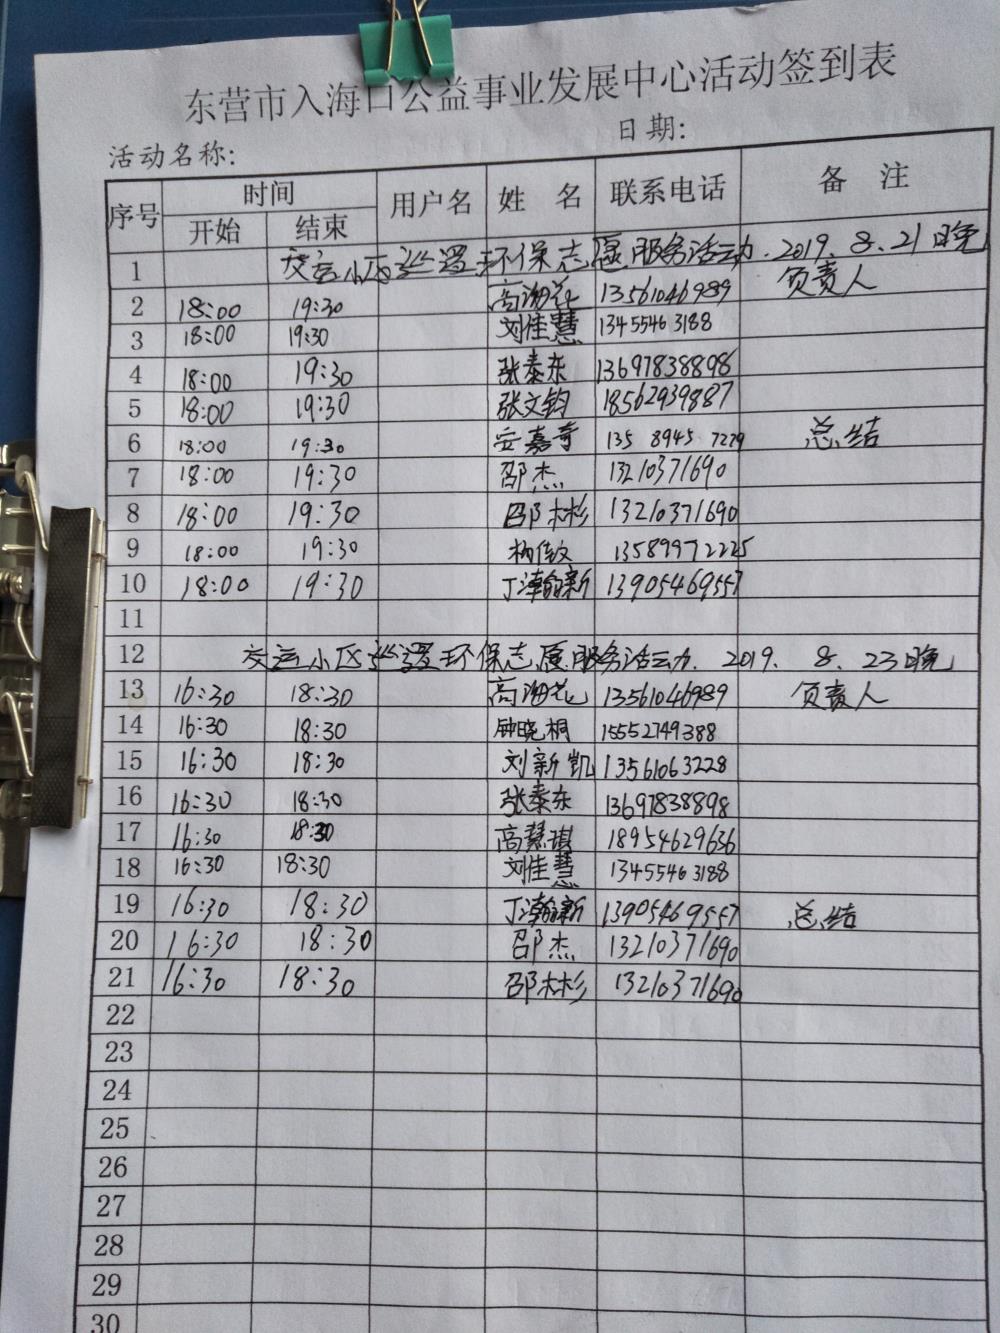 东营市入海口公益事业发展中心活动签到表
活动名称: 日期:
序号 时间 用户名 姓 名 联系电话 备 注
开始 结束
1 交运小区垃圾环保志愿服务活动.2019.8.21日晚
2 18:00 19:30 高海花 13561046989 负责人
3 18:00 19:30 刘佳慧 13455463188
4 18:00 19:30 张泰东 13697838898
5 18:00 19:30 张文钧 18562939887
6 18:00 19:30 安嘉奇 135 8945 7229 总结
7 18:00 19:30 邵杰 13210371690
8 18:00 19:30 邵林彬 13210371690
9 18:00 19:30 13589972225
10 18:00 19:30 丁瀚新 13905469557
11
12 交运小区垃圾环保志愿服务活动. 2019. 8. 23日晚
13 16:30 18:30 高海花 13561046989 负责人
14 16:30 18:30 钟晓桐 15552749388
15 16:30 18:30 刘新凯 13561063228
16 16:30 18:30 张泰东 13697838898
17 16:30 18:30 高慧琪 18954629636
18 16:30 18:30 刘佳慧 13455463188
19 16:30 18:30 丁瀚新 13905469557 总结
20 16:30 18:30 邵杰 13210371690
21 16:30 18:30 邵林彬 13210371690
22
23
24
25
26
27
28
29
30